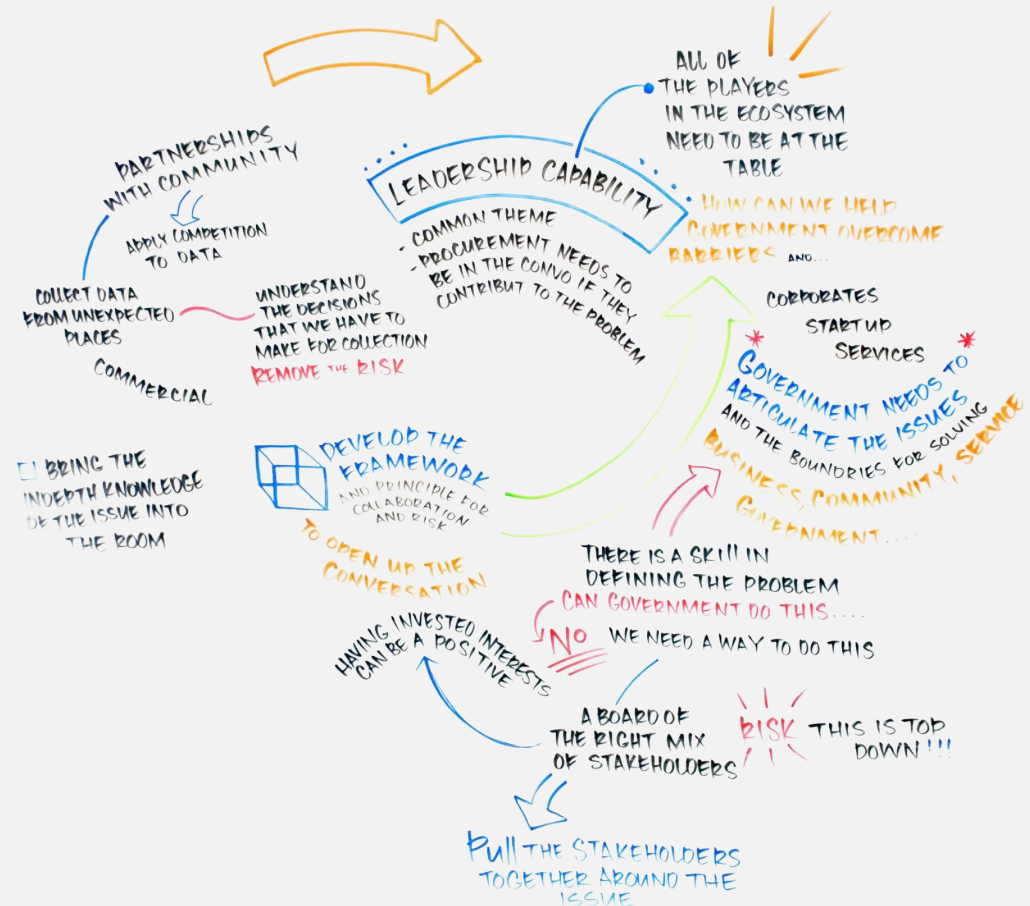 PARTNERSHIPS
WITH COMMUNITY
APPLY COMPETITION
TO DATA
COLLECT DATA
FROM UNEXPECTED
PLACES
COMMERCIAL
UNDERSTAND
THE DECISIONS
THAT WE HAVE TO
MAKE FOR COLLECTION
REMOVE THE RISK
LEADERSHIP CAPABILITY
- COMMON THEME
- PROCUREMENT NEEDS TO
BE IN THE CONVO IF THEY
CONTRIBUT TO THE PROBLEM
ALL OF
THE PLAYERS
IN THE ECOSYSTEM
NEED TO BE AT THE
TABLE
HOW CAN WE HELP
GOVERNMENT OVERCOME
BARRIERS AND...
CORPORATES
START UP
SERVICES
* GOVERNMENT NEEDS TO *
ARTICULATE THE ISSUES
AND THE BOUNDRIES FOR SOLVING
BUSINESS, COMMUNITY, SERVICE
GOVERNMENT....
BRING THE
INDEPTH KNOWLEDGE
OF THE ISSUE INTO
THE ROOM
DEVELOP THE
FRAMEWORK
AND PRINCIPLE FOR
COLLABORATION
AND RISK
TO OPEN UP THE
CONVERSATION
THERE IS A SKILL IN
DEFINING THE PROBLEM
CAN GOVERNMENT DO THIS....
NO WE NEED A WAY TO DO THIS
HAVING INVESTED INTERESTS
CAN BE A POSITIVE
A BOARD OF
THE RIGHT MIX
OF STAKEHOLDERS
RISK THIS IS TOP
DOWN!!!
PULL THE STAKEHOLDERS
TOGETHER AROUND THE
ISSUE